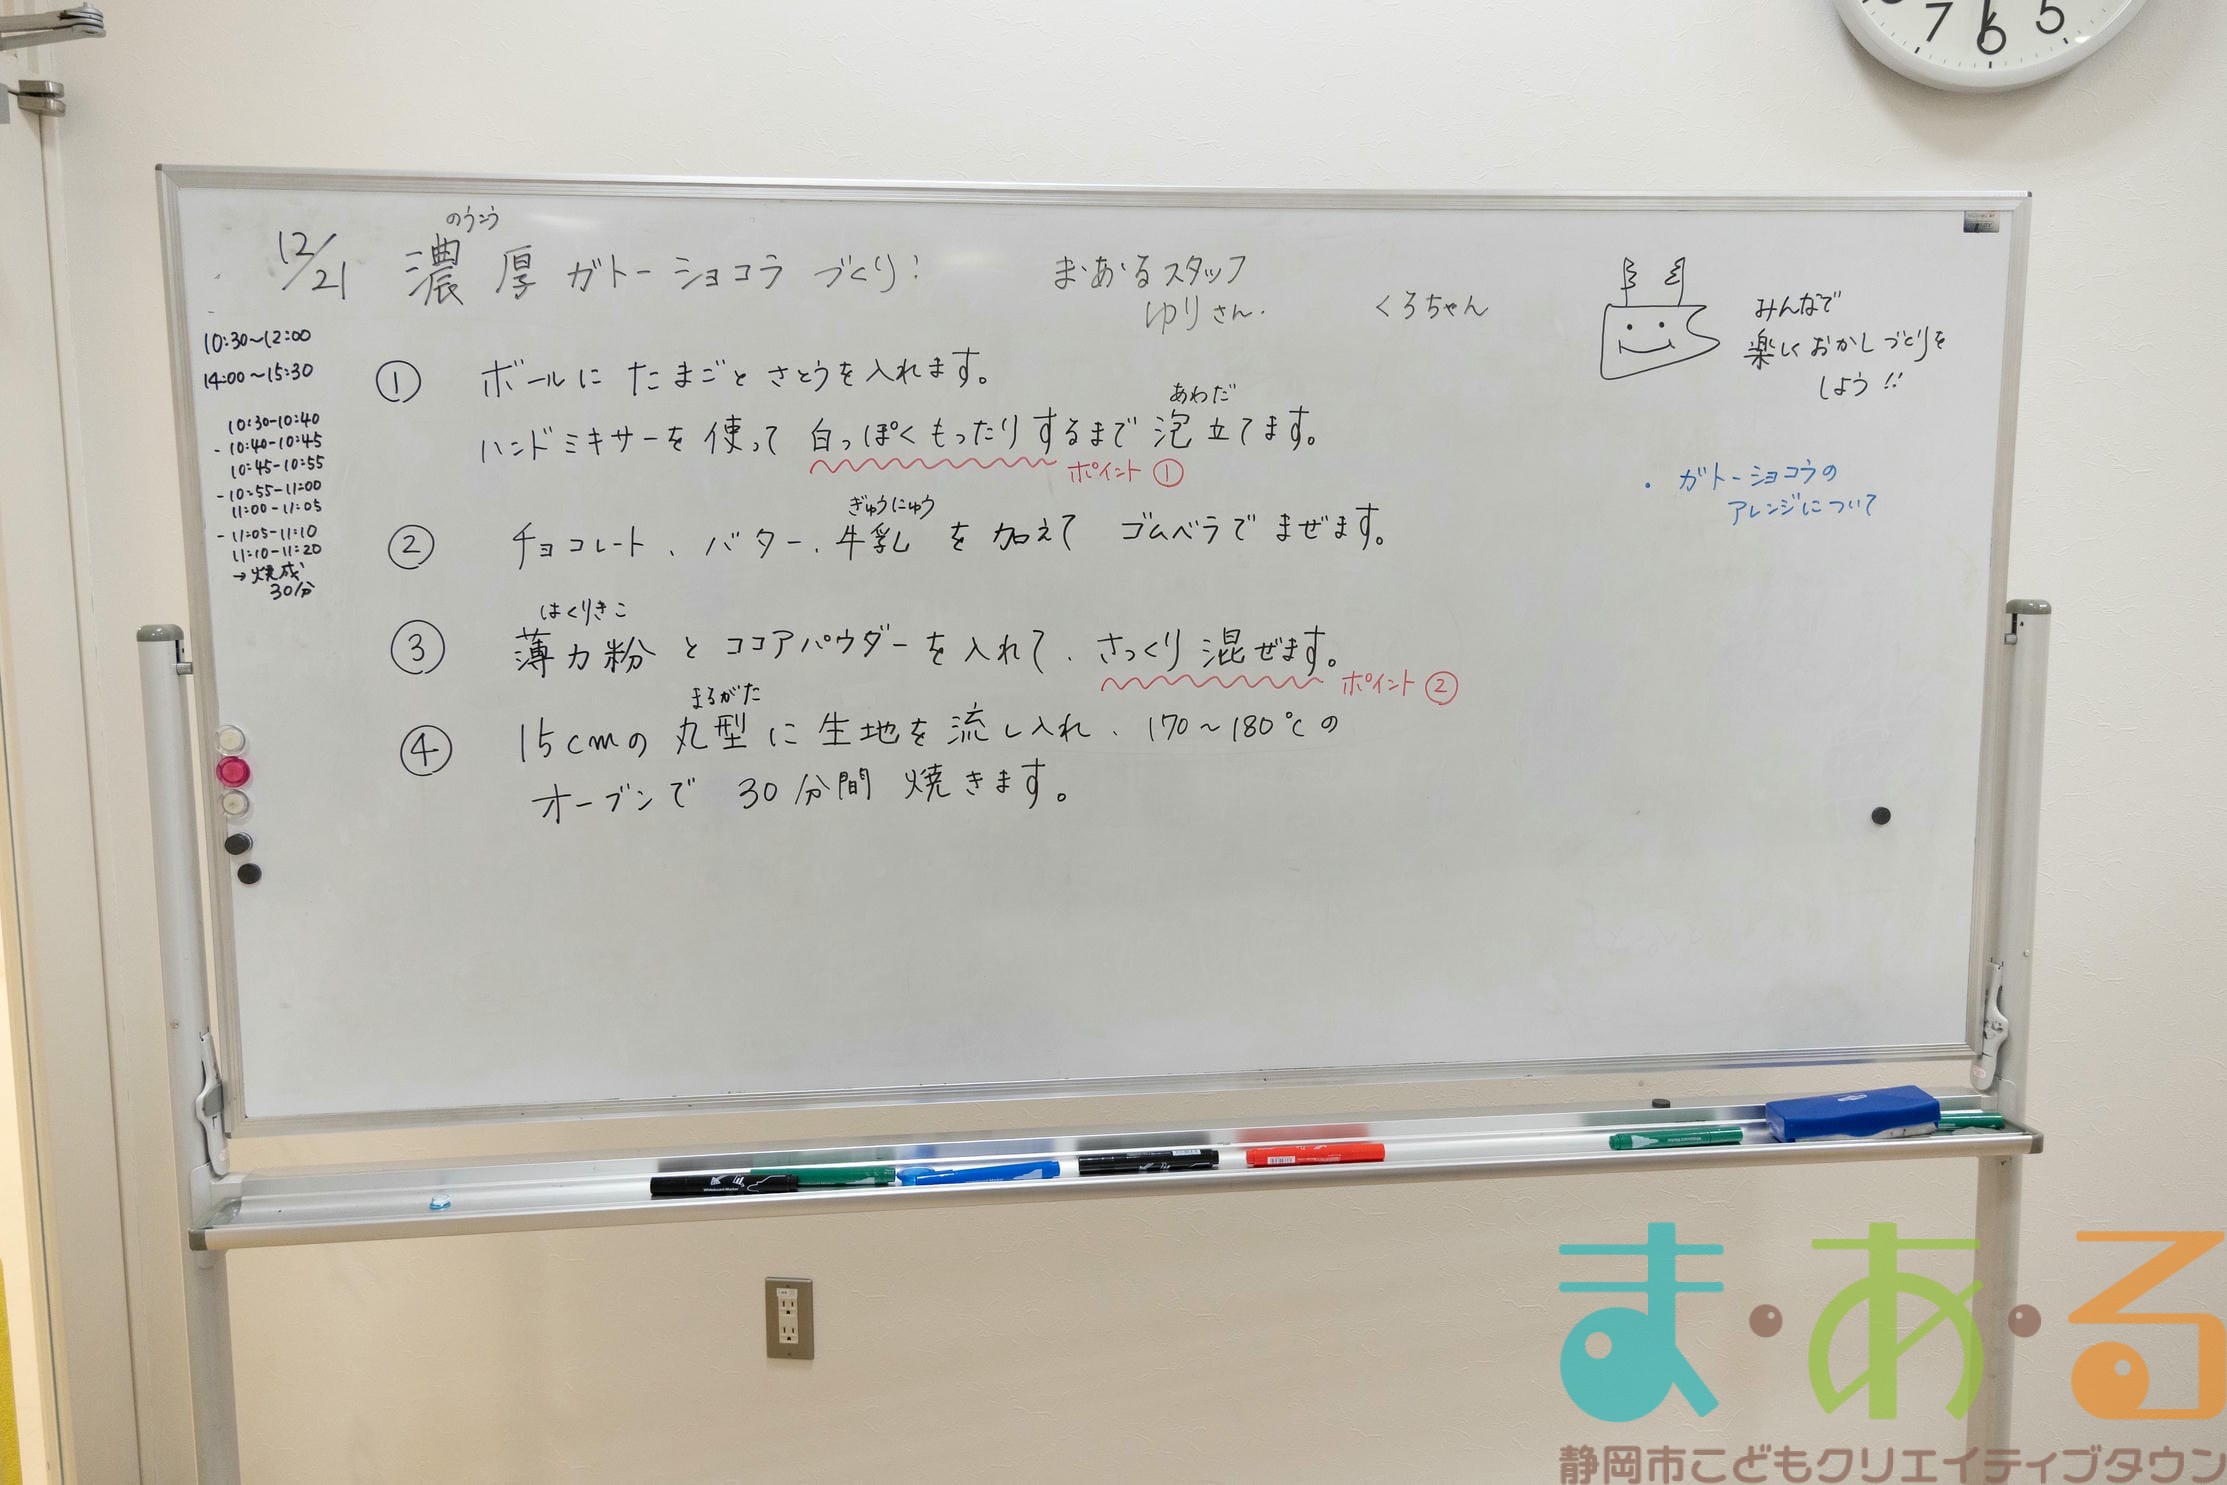 12/21
のうこう
濃厚ガトーショコラづくり!
ま・あ・るスタッフ
ゆりさん.
くろちゃん
みんなで
楽しくおかしづくりを
しよう!!
10:30~12:00
14:00~15:30
10:30-10:40
- 10:40-10:45
10:45-10:55
- 10:55-11:00
11:00-11:05
- 11:05-11:10
11:10-11:20
→焼成
30分
① ボールに たまごと さとうを入れます。
あわだ
ハンドミキサーを使って 白っぽくもったりするまで泡立てます。
ポイント①
ぎゅうにゅう
② チョコレート、バター、牛乳 を加えて ゴムベラで まぜます。
はくりきこ
③ 薄力粉 と ココアパウダーを入れて、さっくり混ぜます。
ポイント②
まるがた
④ 15cmの丸型に生地を流し入れ、170~180℃の
オーブンで 30分間 焼きます。
・ガトーショコラの
アレンジについて
7 6 5
ま・あ・る
静岡市こどもクリエイティブタウン